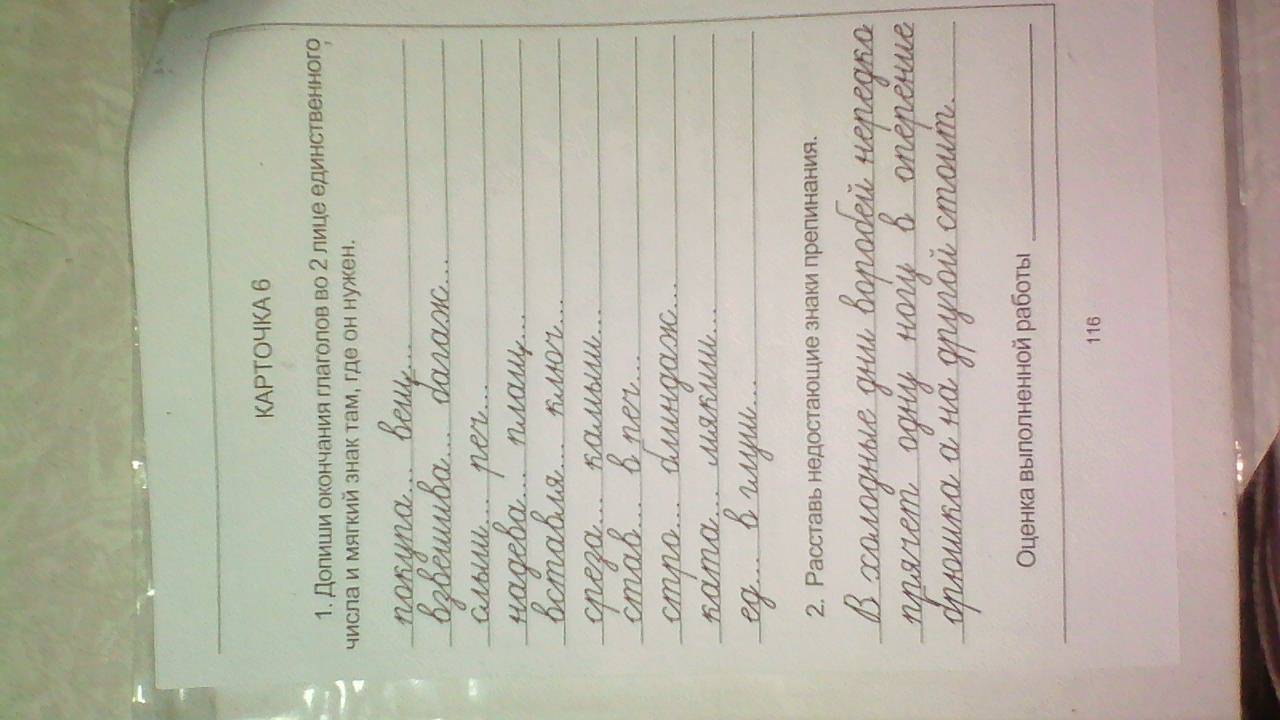 КАРТОЧКА 6
1. Допиши окончания глаголов во 2 лице единственного
числа и мягкий знак там, где он нужен.
покупа... вещ...
взвешива... багаж...
слыш... реч...
надева... плащ...
вставля... ключ...
среза... камыш...
став... в печ...
стро... блиндаж...
ката... мякиш...
ед... в глуш...
2. Расставь недостающие знаки препинания.
В холодные дни воробей нередко
прячет одну ногу в оперение
брюшка а на другой стоит.
Оценка выполненной работы
116